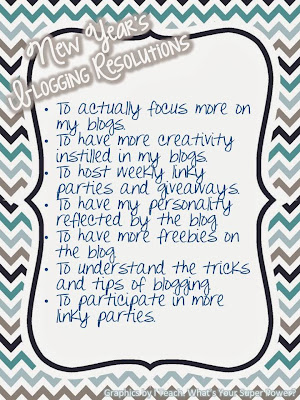 New Year's
Blogging Resolutions
• To actually focus more on
my blogs.
• To have more creativity
instilled in my blogs.
• To host weekly linky
parties and giveaways.
• To have my personality
reflected by the blog
• To have more freebies on
the blog
• To understand the tricks
and tips of blogging
• To participate in more
linky parties.
Graphics by I Teach! What's Your Super Power?